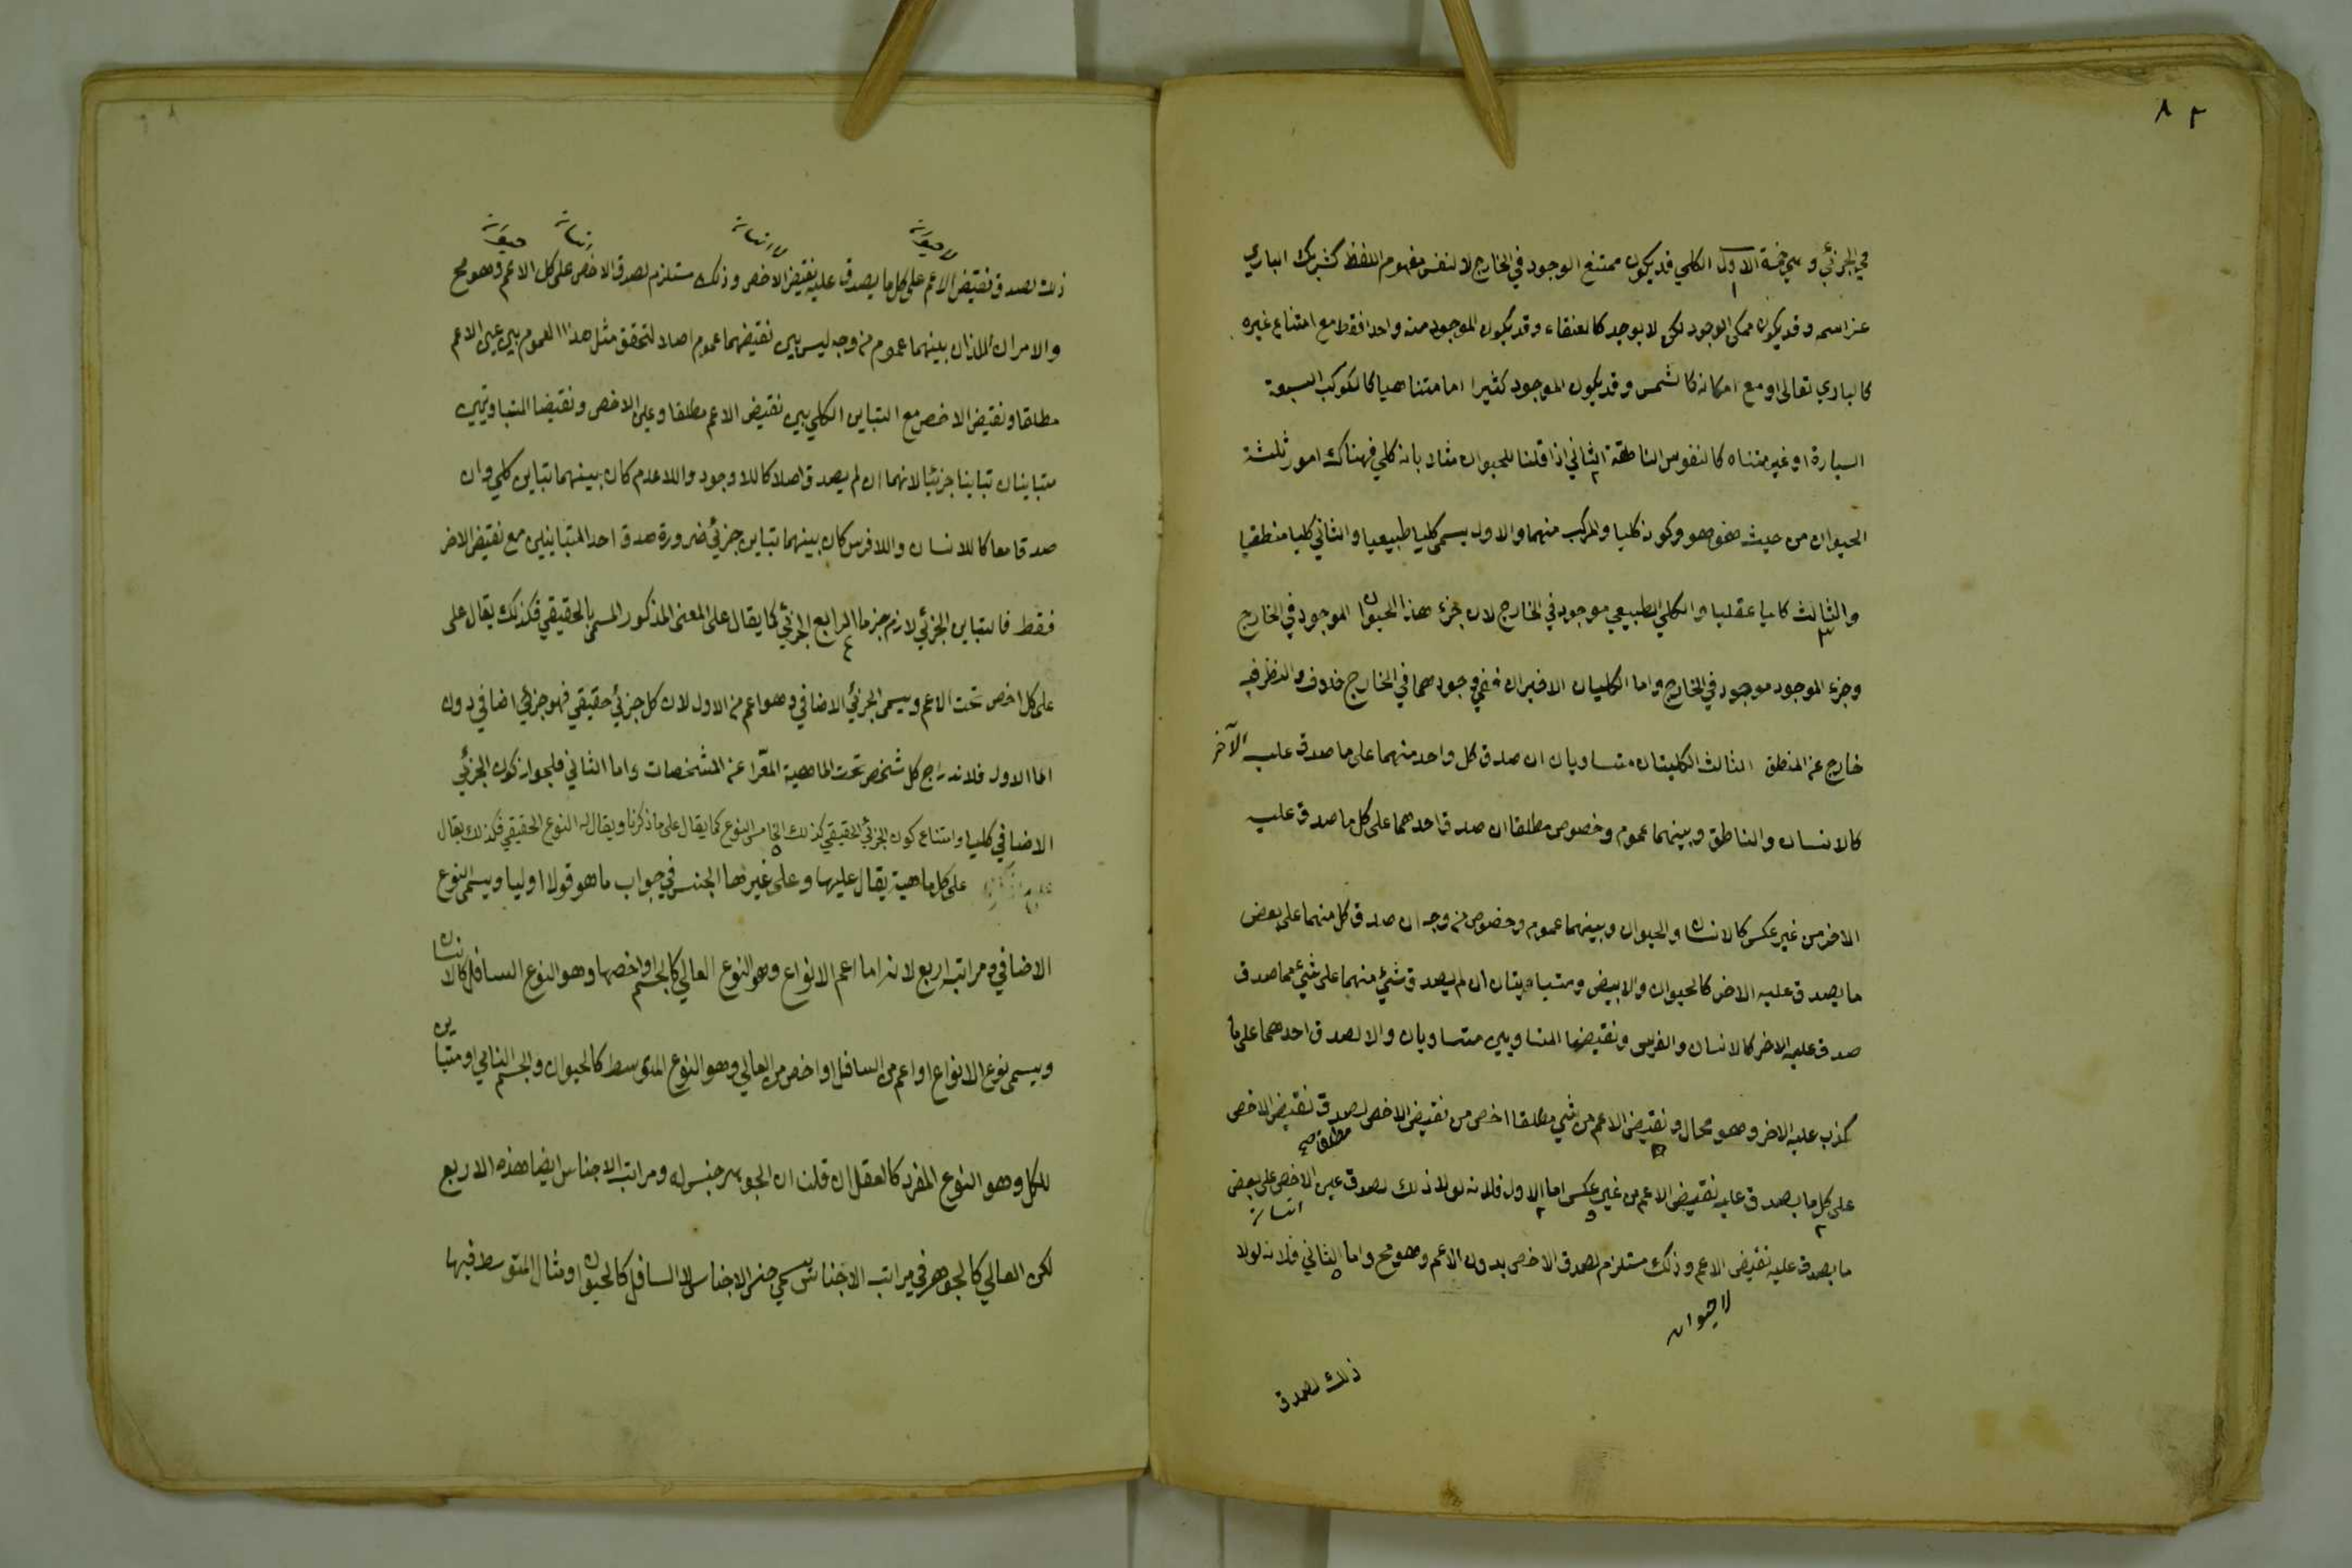 ٨٢
في الجزئي وهي خمسة الاول الكلي قد يكون ممتنع الوجود في الخارج لا لنفس مفهوم اللفظ كشريك الباري
عز اسمه وقد يكون ممكن الوجود لكن لا يوجد كالعنقاء وقد يكون الموجود منه واحدا فقط مع امتناع غيره
كالباري تعالى او مع امكانه كالشمس وقد يكون الموجود كثيرا اما متناهيا كالكوكب السبعة
السيارة او غير متناه كالنفوس الناطقة الثاني اذا قلنا للحيوان مثلا بانه كلي فهناك امور ثلثة
الحيوان من حيث هو هو وكونه كليا والمركب منهما والاول يسمى كليا طبيعيا والثاني كليا منطقيا
والثالث كليا عقليا والكلي الطبيعي موجود في الخارج لان جزء هذا الحيوان الموجود في الخارج
وجزء الموجود موجود في الخارج واما الكليان الاخيران ففي وجودهما في الخارج خلاف والنظر فيه
خارج عن المنطق الثالث الكليتان متساويان ان صدق كل واحد منهما على ما صدق عليه الآخر
كالانسان والناطق وبينهما عموم وخصوص مطلقا ان صدق احدهما على كل ما صدق عليه
الاخر من غير عكس كالانسان والحيوان وبينهما عموم وخصوص من وجه ان صدق كل منهما على بعض
ما يصدق عليه الاخر كالحيوان والابيض ومتباينان ان لم يصدق شيء منهما على شيء مما صدق
صدق عليه الاخر كالانسان والفرس ونقيضها المتساويين متساويان والا لصدق احدهما على ما
كذب عليه الاخر وهو محال ونقيض الاعم من شي مطلقا اخص من نقيض الاخص لصدق نقيض الاخص
مطلقا صح
على كل ما يصدق عليه نقيض الاعم من غير عكس اما الاول فلانه لولا ذلك لصدق عين الاخص على بعض
انسان
ما يصدق عليه نقيض الاعم وذلك مستلزم لصدق الاخص بدون الاعم وهو مح واما الثاني فلانه لولا
لا حيوان
ذلك لصدق
ذلك لصدق نقيض الاعم على كل ما يصدق عليه نقيض الاخص وذلك مستلزم لصدق الاخص على كل الاعم وهو مح
والامران اللذان بينهما عموم من وجه ليس بين نقيضهما عموم اصلا لتحقق مثل هذا العموم بين عين الاعم
مطلقا ونقيض الاخص مع التباين الكلي بين نقيض الاعم مطلقا وعين الاخص ونقيضا المتباينين
متباينان تباينا جزئيا لانهما ان لم يصدق اصلا كاللاوجود واللاعدم كان بينهما تباين كلي وان
صدقا معا كاللاانسان واللافرس كان بينهما تباين جزئي ضرورة صدق احد المتباينين مع نقيض الاخر
فقط فالتباين الجزئي لازم جزما الرابع الجزئي كما يقال على المعنى المذكور المسمى بالحقيقي فكذلك يقال على
على كل اخص تحت الاعم ويسمى الجزئي الاضافي وهو اعم من الاول لان كل جزئي حقيقي فهو جزئي اضافي دون
اما الاول فلاندراج كل شخص تحت الماهية المعرا عن المشخصات واما الثاني فلجواز كون الجزئي
الاضافي كليا وامتناع كون الجزئي الحقيقي كذلك الخامس النوع كما يقال على ما ذكرنا ويقال له النوع الحقيقي فكذلك يقال
على كل ماهية يقال عليها وعلى غيرها الجنس في جواب ما هو قولا اوليا ويسمى النوع
الاضافي ومراتبه اربع لانه اما اعم الانواع وهو النوع العالي كالجسم او اخصها وهو النوع السافل كالانسان
ويسمى نوع الانواع او اعم من السافل او اخص من العالي وهو النوع المتوسط كالحيوان والجسم النامي او متباين
للكل وهو النوع المفرد كالعقل ان قلنا ان الجوهر جنس له ومراتب الاجناس ايضا هذه الاربع
لكن العالي كالجوهر في مراتب الاجناس يسمى جنس الاجناس لا السافل كالحيوان ومثال المتوسط فيها